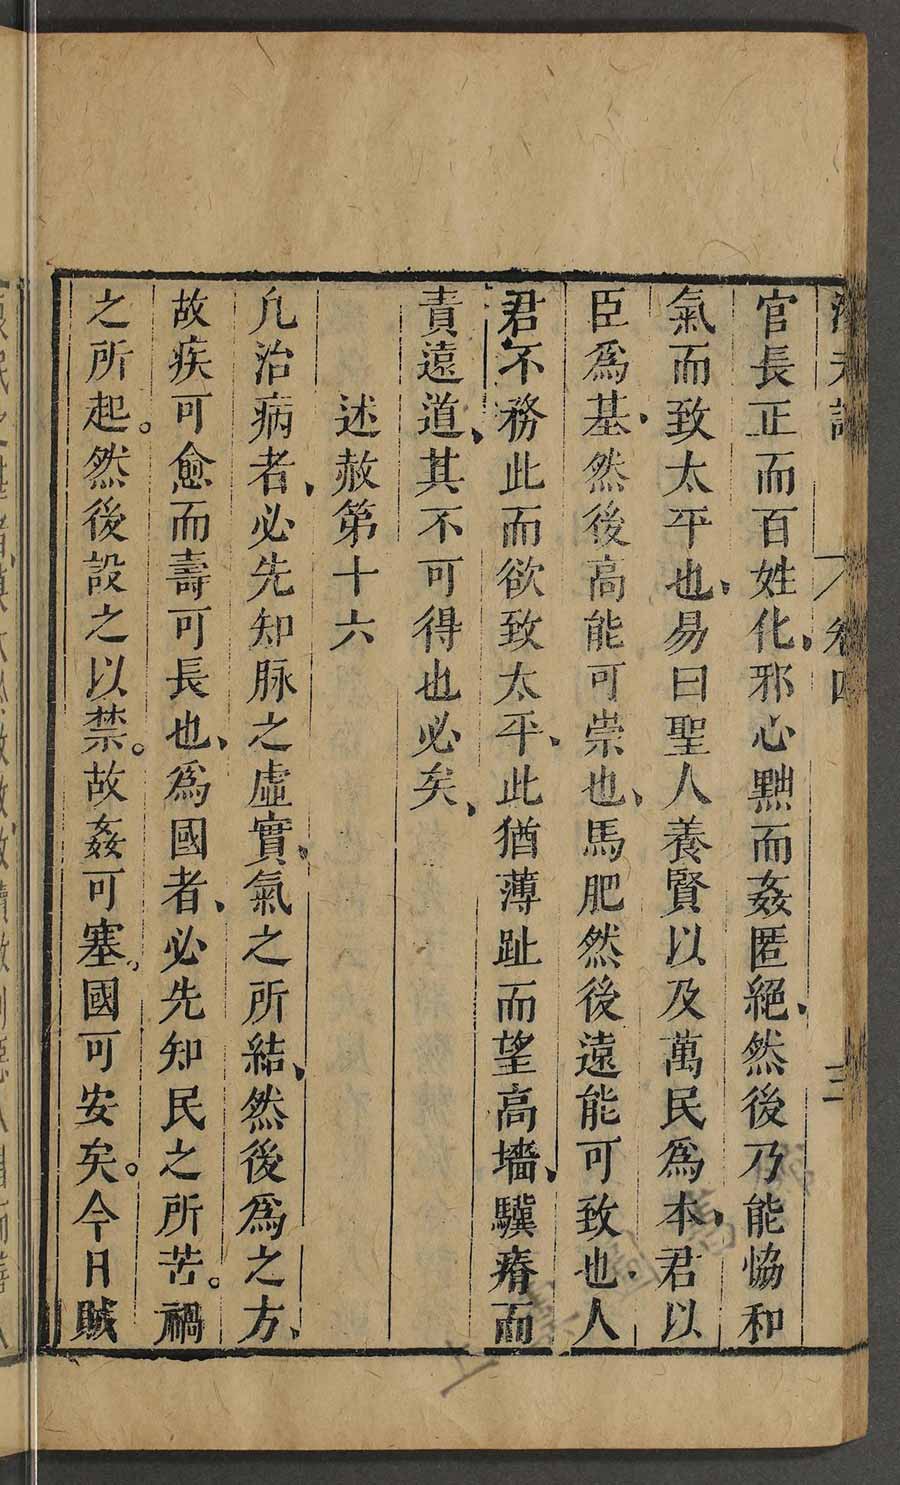 官長正而百姓化、邪心黜而姦匿絕、然後乃能恊和
氣而致太平也、易曰聖人養賢以及萬民爲本、君以
臣爲基、然後高能可崇也、馬肥然後遠能可致也、人
君不務此而欲致太平、此猶薄趾而望高墻、驥瘠而
責遠道、其不可得也必矣、
述赦第十六
凢治病者、必先知脉之虛實、氣之所結、然後爲之方、
故疾可愈而壽可長也、爲國者、必先知民之所苦。禍
之所起。然後設之以禁。故姦可塞、國可安矣。今日賊
卷四
三